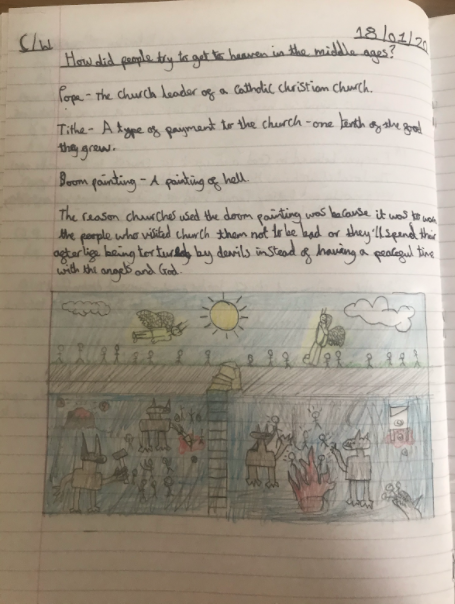 C/W
18/01/20
How did people try to get to heaven in the middle ages?
Pope - The church leader of a Catholic Christian church.
Tithe - A type of payment to the church - one tenth of the food
they grew.
Doom painting - A painting of hell.
The reason churches used the doom painting was because it was to
the people who visited church them not to be bad or they'll spend their
afterlife being tortured by devils instead of having a peaceful time
with the angels and God.